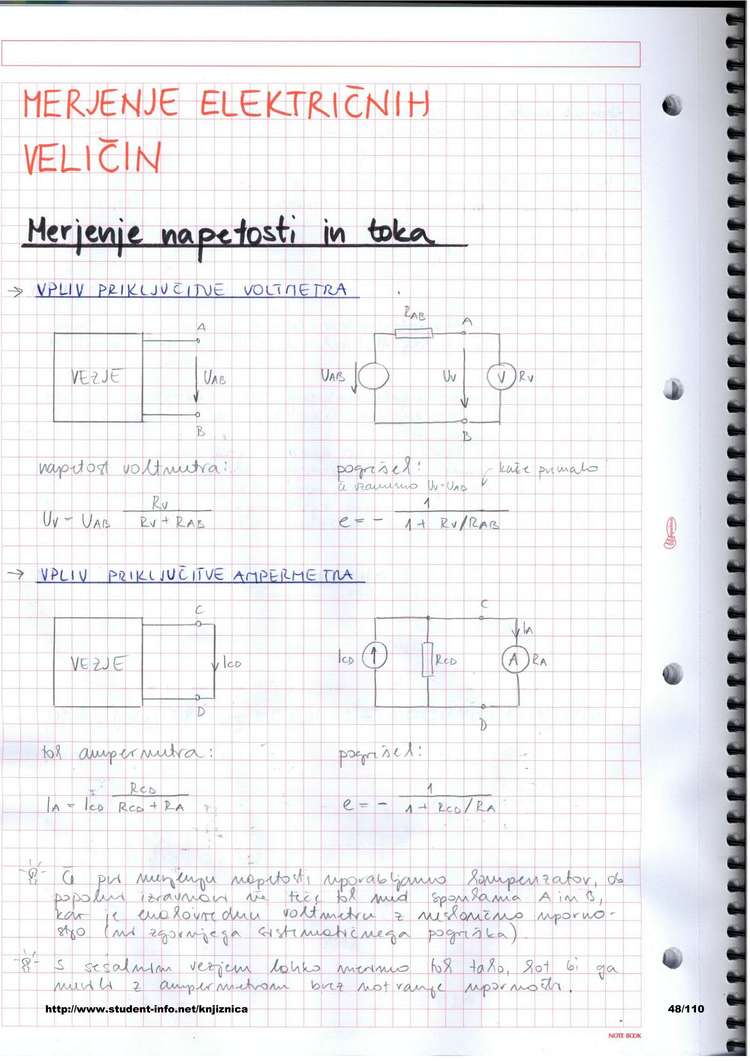 MERJENJE ELEKTRIČNIH
VELIČIN
Merjenje napetosti in toka
→ VPLIV PRIKLJUČITVE VOLTMETRA
A
VEZJE
UAB
B
RAB
A
UAB
UV
V
RV
B
napetost voltmetra:
UV = UAB RV / (RV + RAB)
pogrešek:
če vzamemo UV-UAB
kaže premalo
e = - 1 / (1 + RV/RAB)
→ VPLIV PRIKLJUČITVE AMPERMETRA
C
VEZJE
ICD
D
C
ICD
RCD
IA
A
RA
D
tok ampermetra:
IA = ICD RCD / (RCD + RA)
pogrešek:
e = - 1 / (1 + RCD/RA)
Če pri merjenju napetosti uporabljamo kompenzator, ob
popolni izravnavi ne teče tok med sponkama A in B,
kar je enakovredno voltmetru z neskončno uporno-
stjo (ni zgornjega sistematičnega pogreška).
S sesalnim vezjem lahko merimo tok tako, kot bi ga
merili z ampermetrom brez notranje upornosti.
http://www.student-info.net/knjiznica
48/110
NOTE BOOK